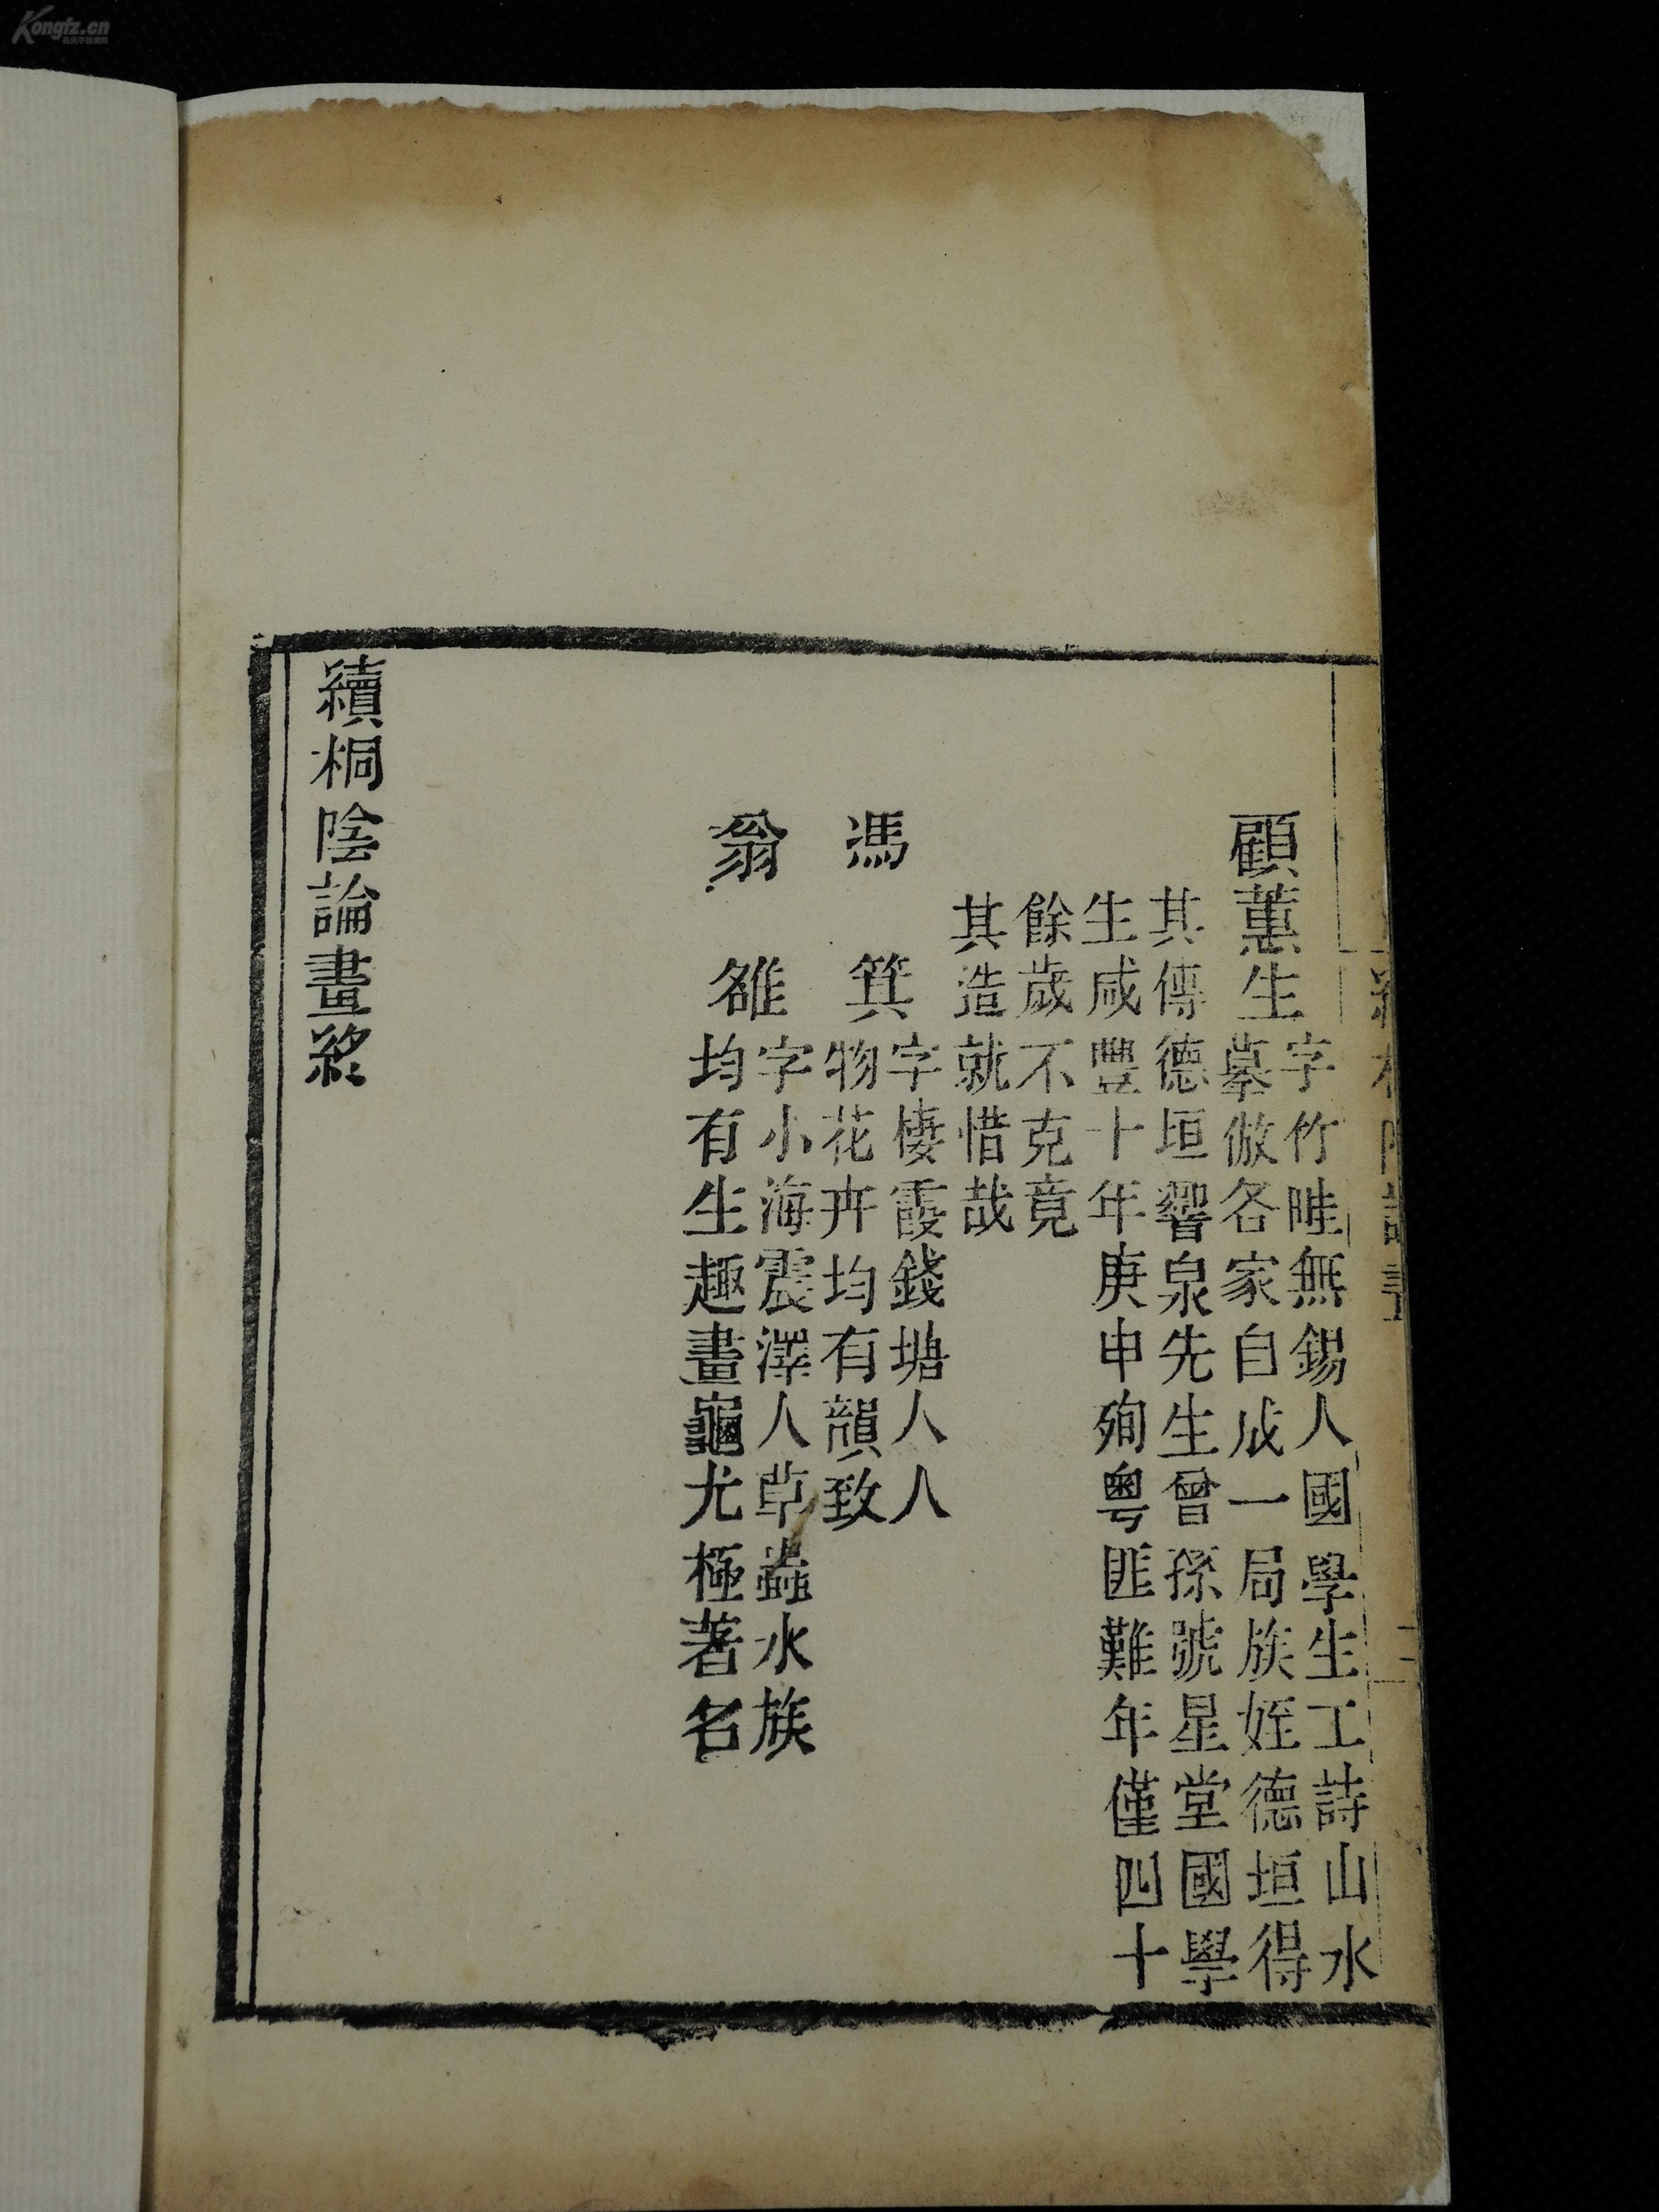 Kongfz.cn
顧蕙生字竹畦無錫人國學生工詩山水
摹倣各家自成一局族姪德垣得
其傳德垣響泉先生曾孫號星堂國學
生咸豐十年庚申殉粵匪難年僅四十
餘歲不克竟
其造就惜哉
馮 箕字棲霞錢塘人人
物花卉均有韻致
翁 雒字小海震澤人草蟲水族
均有生趣畫龜尤極著名
續桐陰論畫終